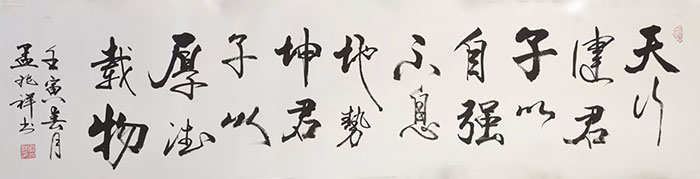 天行
健君
子以
自强
不息
地势
坤君
子以
厚德
载物
壬寅春月
孟兆祥书